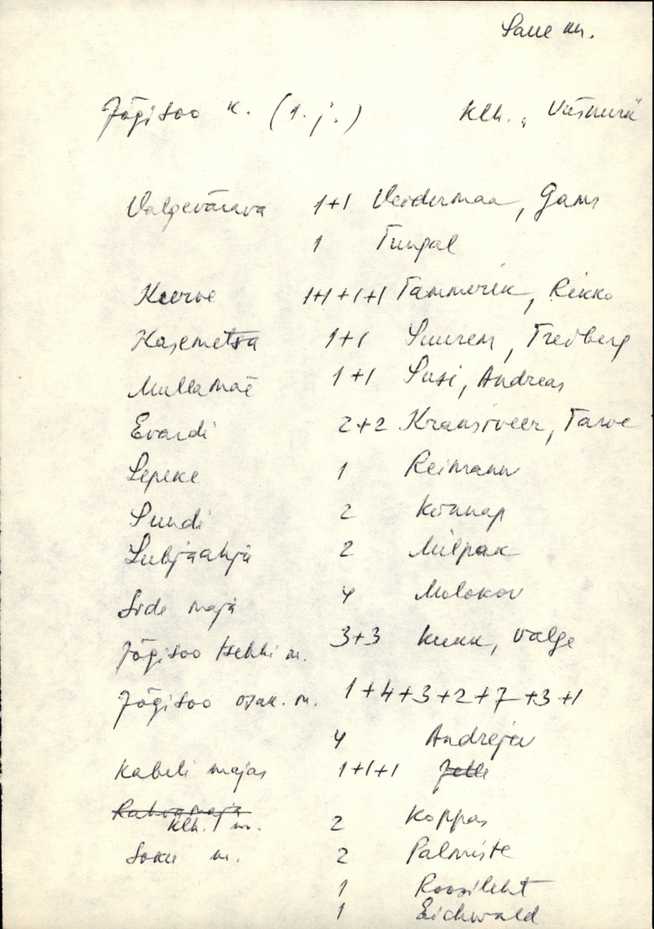 Saue m.
Jõgisoo k. (1. j.) Klh. „Väänura
Valgevärava 1+1 Veidermaa, Gans
1 Tungal
Keerve 1+1+1+1 Tammerik, Rekko
Kasemetsa 1+1 Suurem, Fredberg
Mullamäe 1+1 Susi, Andreas
Evardi 2+2 Kraasiveer, Tarve
Lepeke 1 Reimann
Sundi 2 Könnap
Lubjaahju 2 Milpak
Side maja 4 Molokov
Jõgisoo tsehhi m. 3+3 Kukk, Valge
Jõgisoo osak. m. 1+4+3+2+7+3+1
4 Andrejev
Kabeli majas 1+1+1
Rahvamaja
Klh. 1 m. 2 Koppas
Soku m. 2 Palmiste
1 Roosileht
1 Eichwald